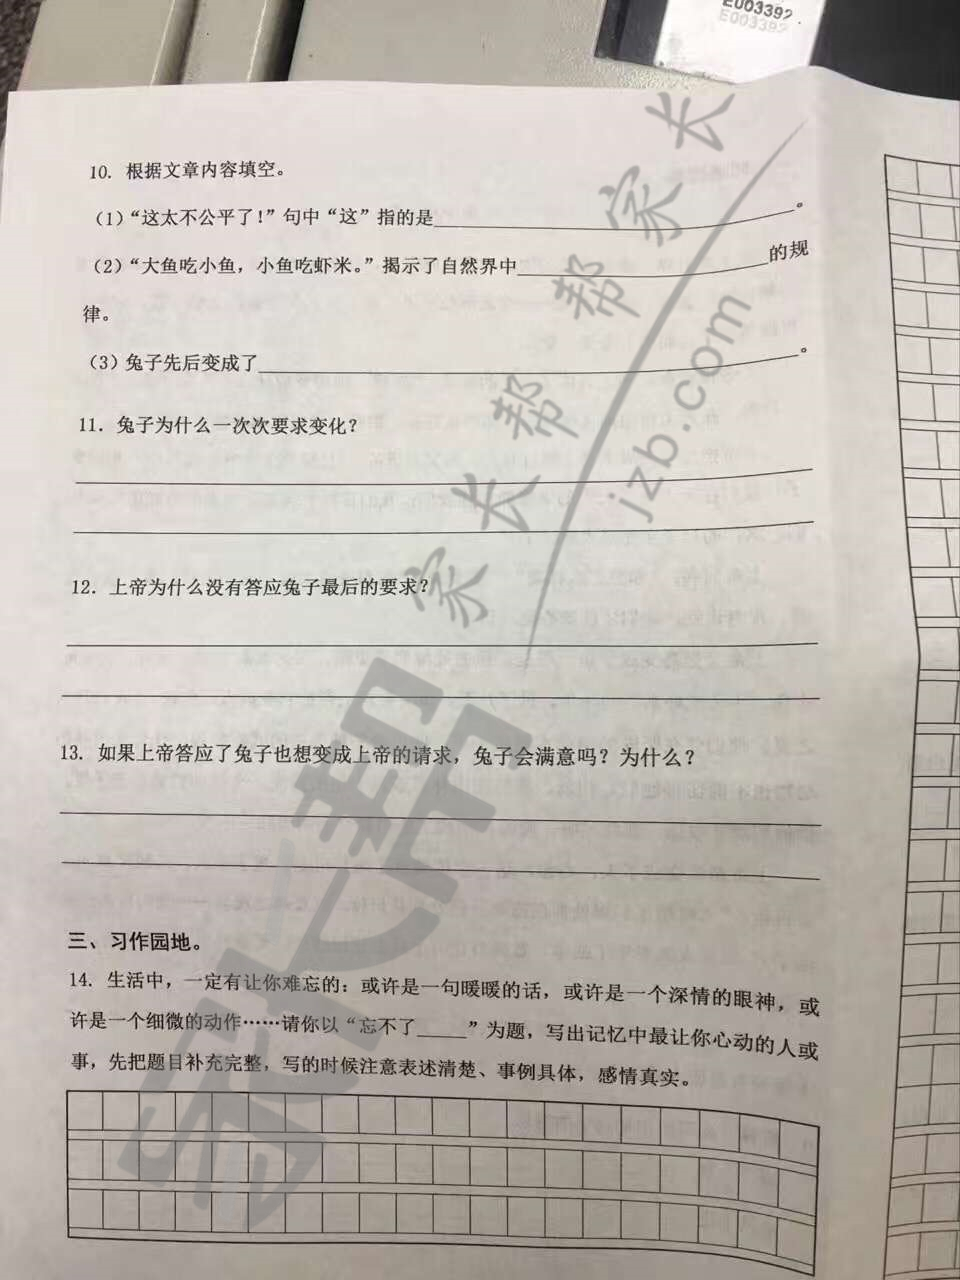 E003392
E003392
10. 根据文章内容填空。
（1）“这太不公平了！”句中“这”指的是____________________。
（2）“大鱼吃小鱼，小鱼吃虾米。”揭示了自然界中____________________的规
律。
（3）兔子先后变成了____________________。
11. 兔子为什么一次次要求变化？
12. 上帝为什么没有答应兔子最后的要求？
13. 如果上帝答应了兔子也想变成上帝的请求，兔子会满意吗？为什么？
三、习作园地。
14. 生活中，一定有让你难忘的：或许是一句暖暖的话，或许是一个深情的眼神，或
许是一个细微的动作……请你以“忘不了_____”为题，写出记忆中最让你心动的人或
事，先把题目补充完整，写的时候注意表述清楚、事例具体，感情真实。
家长帮
家长帮
jzb.com
家长